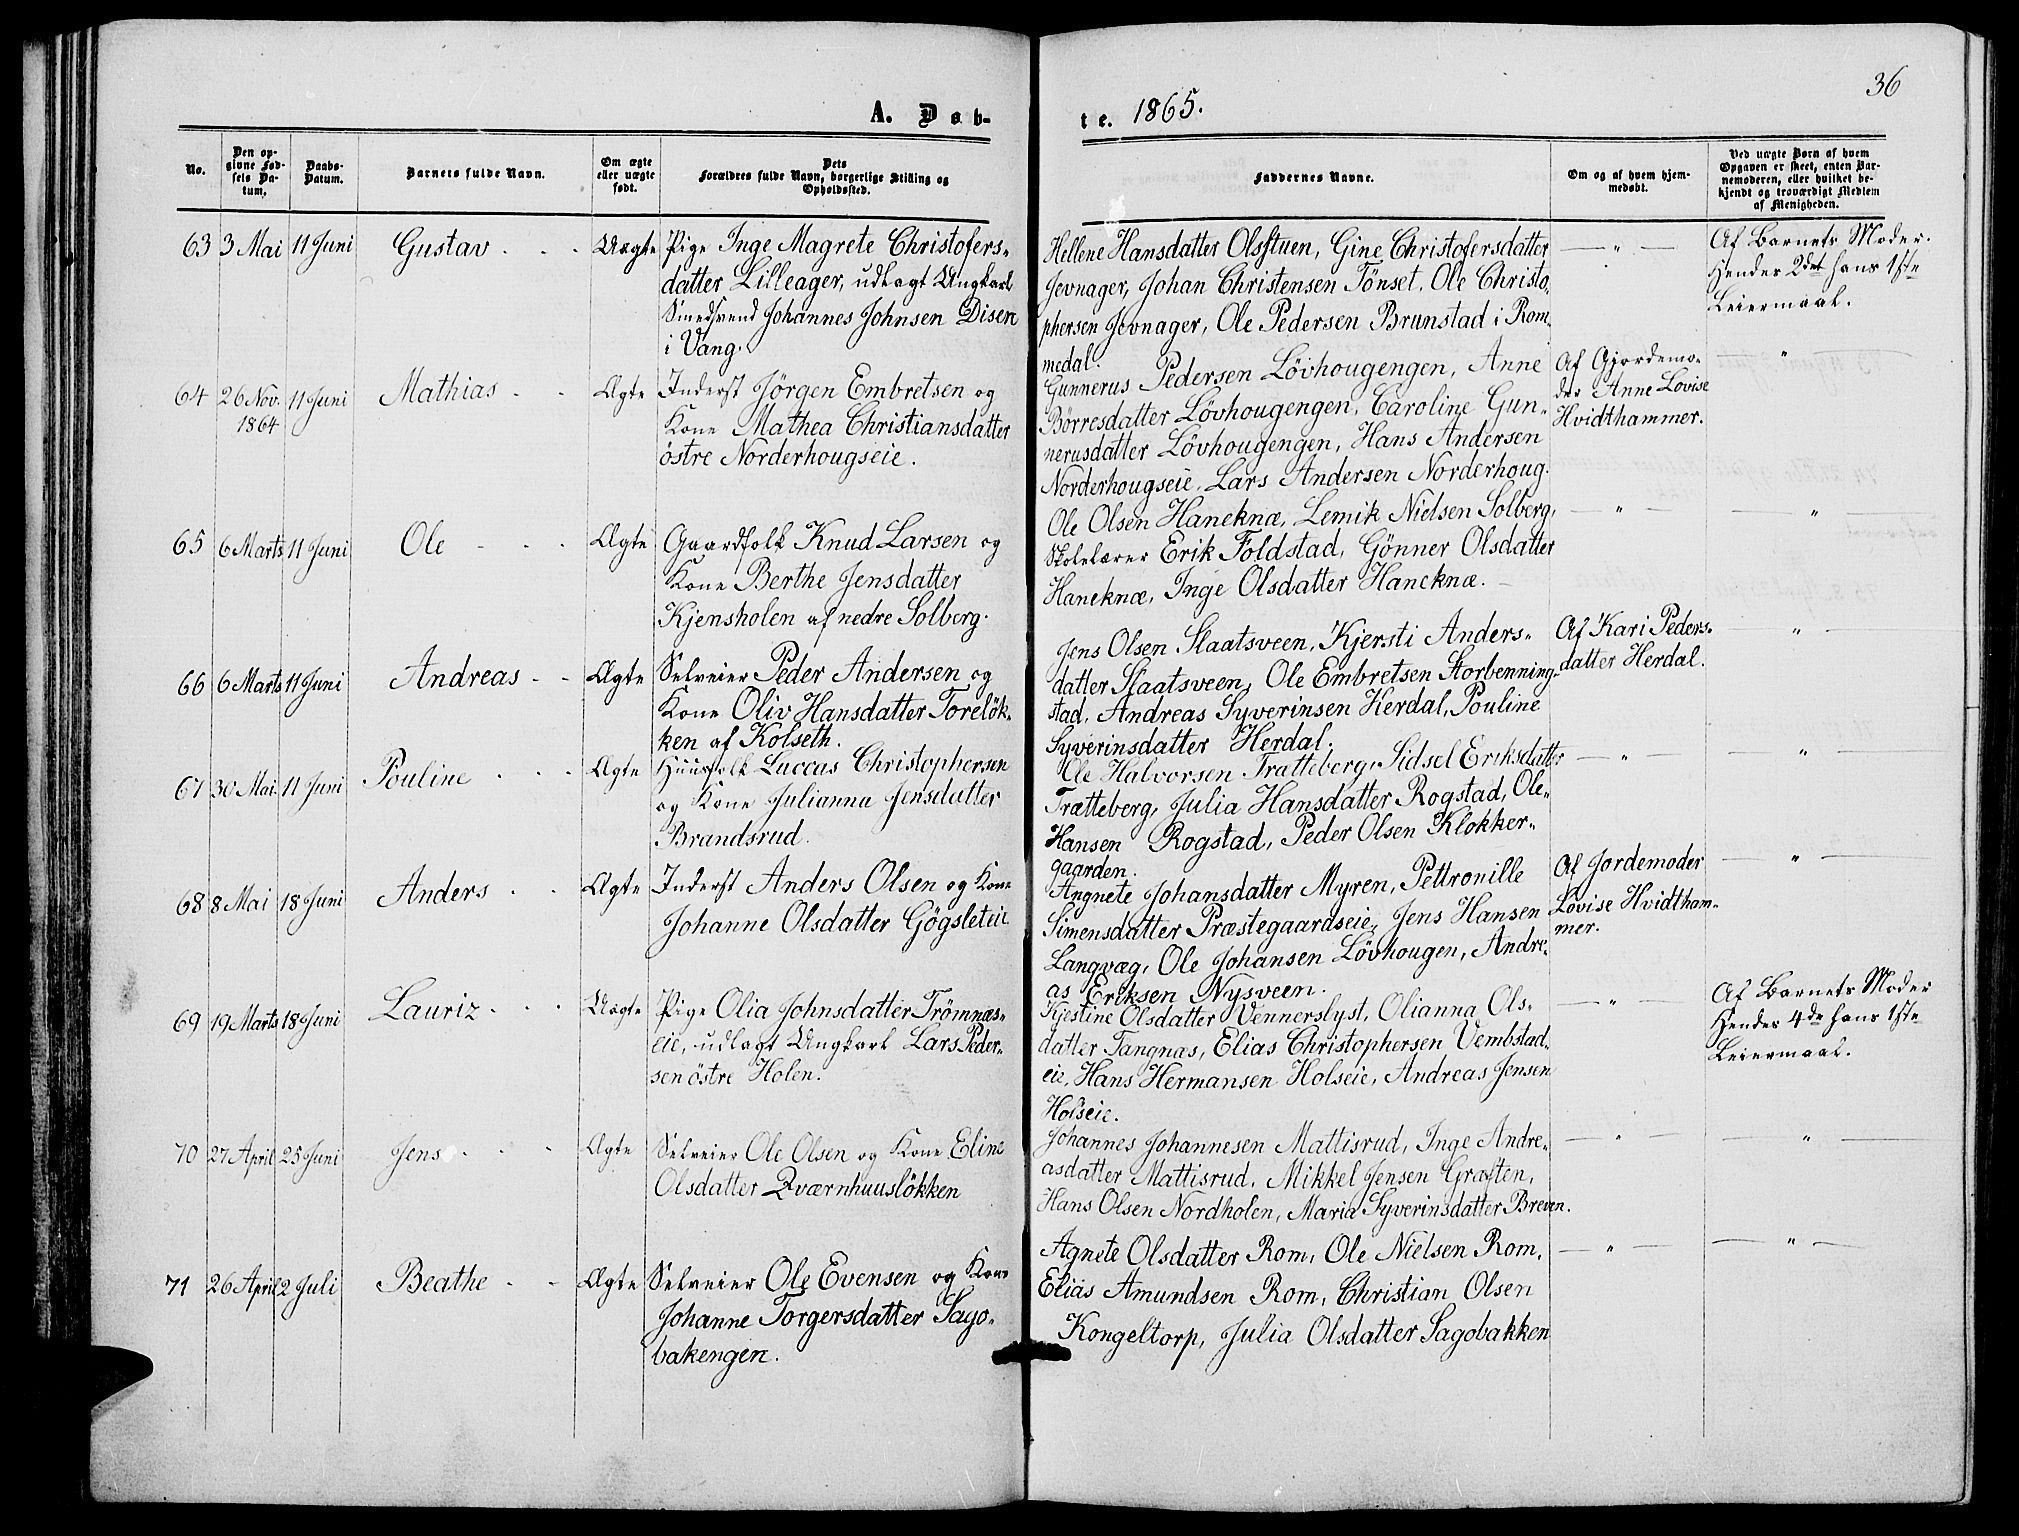 36
A. Døb-
te. 1865.
No.
Den op-
givne Fød-
sels Da-
tum.
Daabs-
Datum.
Barnets fulde Navn.
Om ægte
eller uægte
født.
Dets
Forældres fulde Navn, borgerlige Stilling og
Opholdssted.
Faddernes Navne.
Om og af hvem hjem-
medøbt.
Ved uægte Børn af hvem
Opgaven er skeet, enten Bar-
nemoderen, eller hvilket be-
kjendt og troværdigt Medlem
af Menigheden.
63 3 Mai 11 Juni Gustav Uægte
Pige Inge Magrete Christofers-
datter Lilleager, udlagt Ungkarl
Smedsvend Johannes Johnsen Disen
i Vang.
Hellene Hansdatter Olsstuen, Gine Christofersdatter
Jevnager, Johan Christensen Tönset, Ole Christo-
phersen Jevnager, Ole Pedersen Brunstad i Rom-
medal.
Af Barnets Moder.
Hendes 2det hans 1ste
Leiermaal.
64 26 Nov. 11 Juni Mathias Ægte
1864
Inderst Jörgen Embretsen og
Kone Mathea Christiansdatter
östre Norderhougseie.
Gunnerus Pedersen Lövhougengen, Anne
Börresdatter Lövhougengen, Caroline Gun-
nerusdatter Lövhougengen, Hans Andersen
Norderhougseie, Lars Andersen Norderhoug.
Af Gjordemo-
der Anne Lovise
Hvidthammer.
65 6 Marts 11 Juni Ole Ægte
Gaardfolk Knud Larsen og
Kone Berthe Jensdatter
Kjensholen af nedre Solberg.
Ole Olsen Haneknæ, Lemik Nielsen Solberg,
Skolelærer Erik Foldstad, Gönner Olsdatter
Haneknæ, Inge Olsdatter Haneknæ.
66 6 Marts 11 Juni Andreas Ægte
Selveier Peder Andersen og
Kone Oliv Hansdatter Torelök-
ken af Kolseth.
Jens Olsen Staatsveen, Kjersti Anders-
datter Staatsveen, Ole Embretsen Storbenning-
stad, Andreas Syverinsen Herdal, Pouline
Syverinsdatter Herdal.
Af Kari Peders-
datter Herdal.
67 30 Mai 11 Juni Pouline Ægte
Huusfolk Luccas Christophersen
og Kone Julianna Jensdatter
Brandsrud.
Ole Halvorsen Tratteberg, Sidsel Eriksdatter
Trætteberg, Julia Hansdatter Rogstad, Ole
Hansen Rogstad, Peder Olsen Klokker-
gaarden.
68 8 Mai 18 Juni Anders Ægte
Inderst Anders Olsen og Kone
Johanne Olsdatter Gögsleteie
Angnete Johansdatter Myren, Pettronille
Simensdatter Præstegaardseie, Jens Hansen
Langvæg, Ole Johansen Lövhougen, Andre-
as Eriksen Nysveen.
Af Jordemoder
Lovise Hvidtham-
mer.
69 19 Marts 18 Juni Lauriz Uægte
Pige Olia Johnsdatter Trömnæs-
eie, udlagt Ungkarl Lars Peder-
sen östre Holen.
Kjestine Olsdatter Vennerslyst, Olianna Ols-
datter Tangnæs, Elias Christophersen Vembstad-
eie, Hans Hermansen Holseie, Andreas Jensen
Holseie.
Af Barnets Moder
Hendes 4de hans 1ste
Leiermaal.
70 27 April 25 Juni Jens Ægte
Selveier Ole Olsen og Kone Eline
Olsdatter Qværnhuuslökken
Johannes Johannesen Mattisrud, Inge Andre-
asdatter Mattisrud, Mikkel Jensen Græften,
Hans Olsen Nordholen, Maria Syverinsdatter Breven.
71 26 April 2 Juli Beathe Ægte
Selveier Ole Evensen og Kone
Johanne Torgersdatter Sago-
bakengen.
Agnete Olsdatter Rom, Ole Nielsen Rom,
Elias Amundsen Rom, Christian Olsen
Kongeltorp, Julia Olsdatter Sagobakken